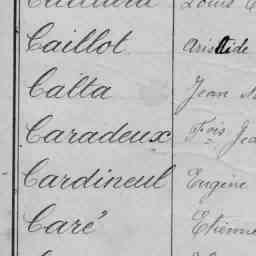 Caillot Aristide
Calta Jean
Caradeux Fois Jea
Cardineul Eugène
Caré Etienne